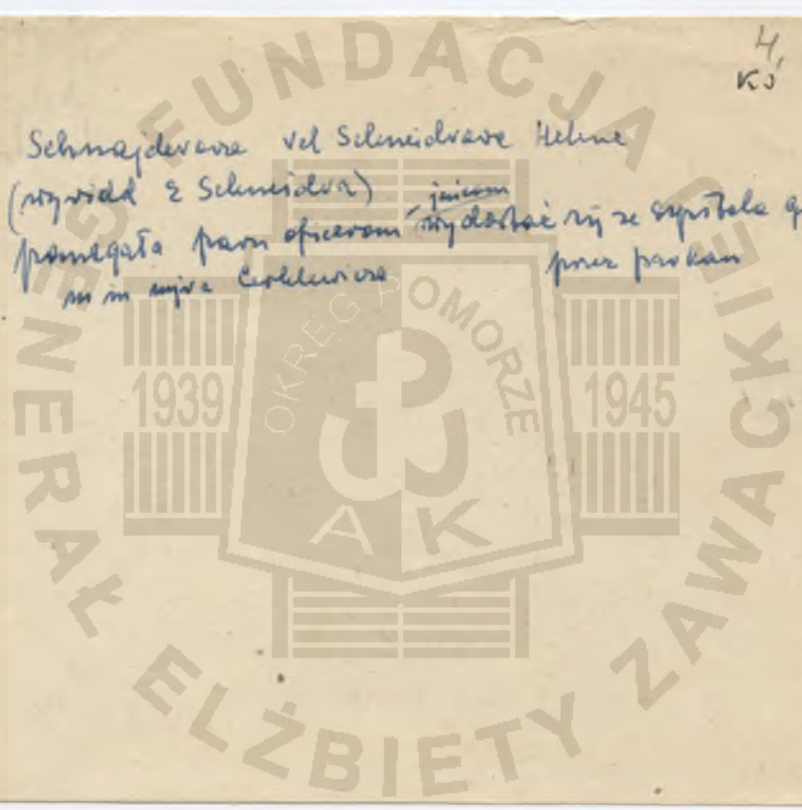 4,
KJ
Schnajderowa vel Schneidrowa Helena
(wywiad z Schneidrą)
jeńcom
pomagała paru oficerom wydostać się ze szpitala
m in mjra przez parkan
FUNDACJA
GENERAŁ ELŻBIETY ZAWACKIEJ
OKRĘG POMORZE
1939 1945
AK